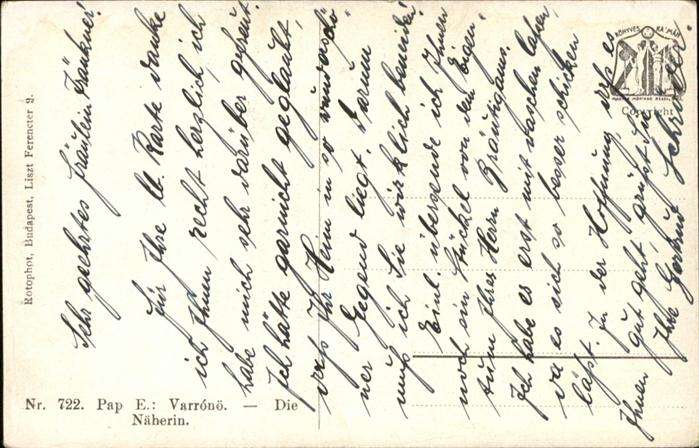 Sehr geehrtes Fräulein
Für Ihre lb. Karte danke
ich Ihnen recht herzlich, ich
habe mich sehr darüber gefreut.
Ich hätte garnicht geglaubt,
dass Ihr Heim in so wundersch-
ner Gegend liegt. Darum
muss ich Sie wirklich beneiden!
Einl. übersende ich Ihnen
noch ein Stückel von dem Eigen-
tum Ihres Herrn Bräutigams.
Ich habe es erst mit waschen lassen,
da es sich so besser schicken
lässt. In der Hoffnung, dass es
Ihnen gut geht, grüsst Sie
Ihre Gertrud
KÖNYVES KÁLMÁN
Copyright
Rotophot, Budapest, Liszt Ferenctér 2.
Nr. 722. Pap E.: Varrónö. — Die
Näherin.